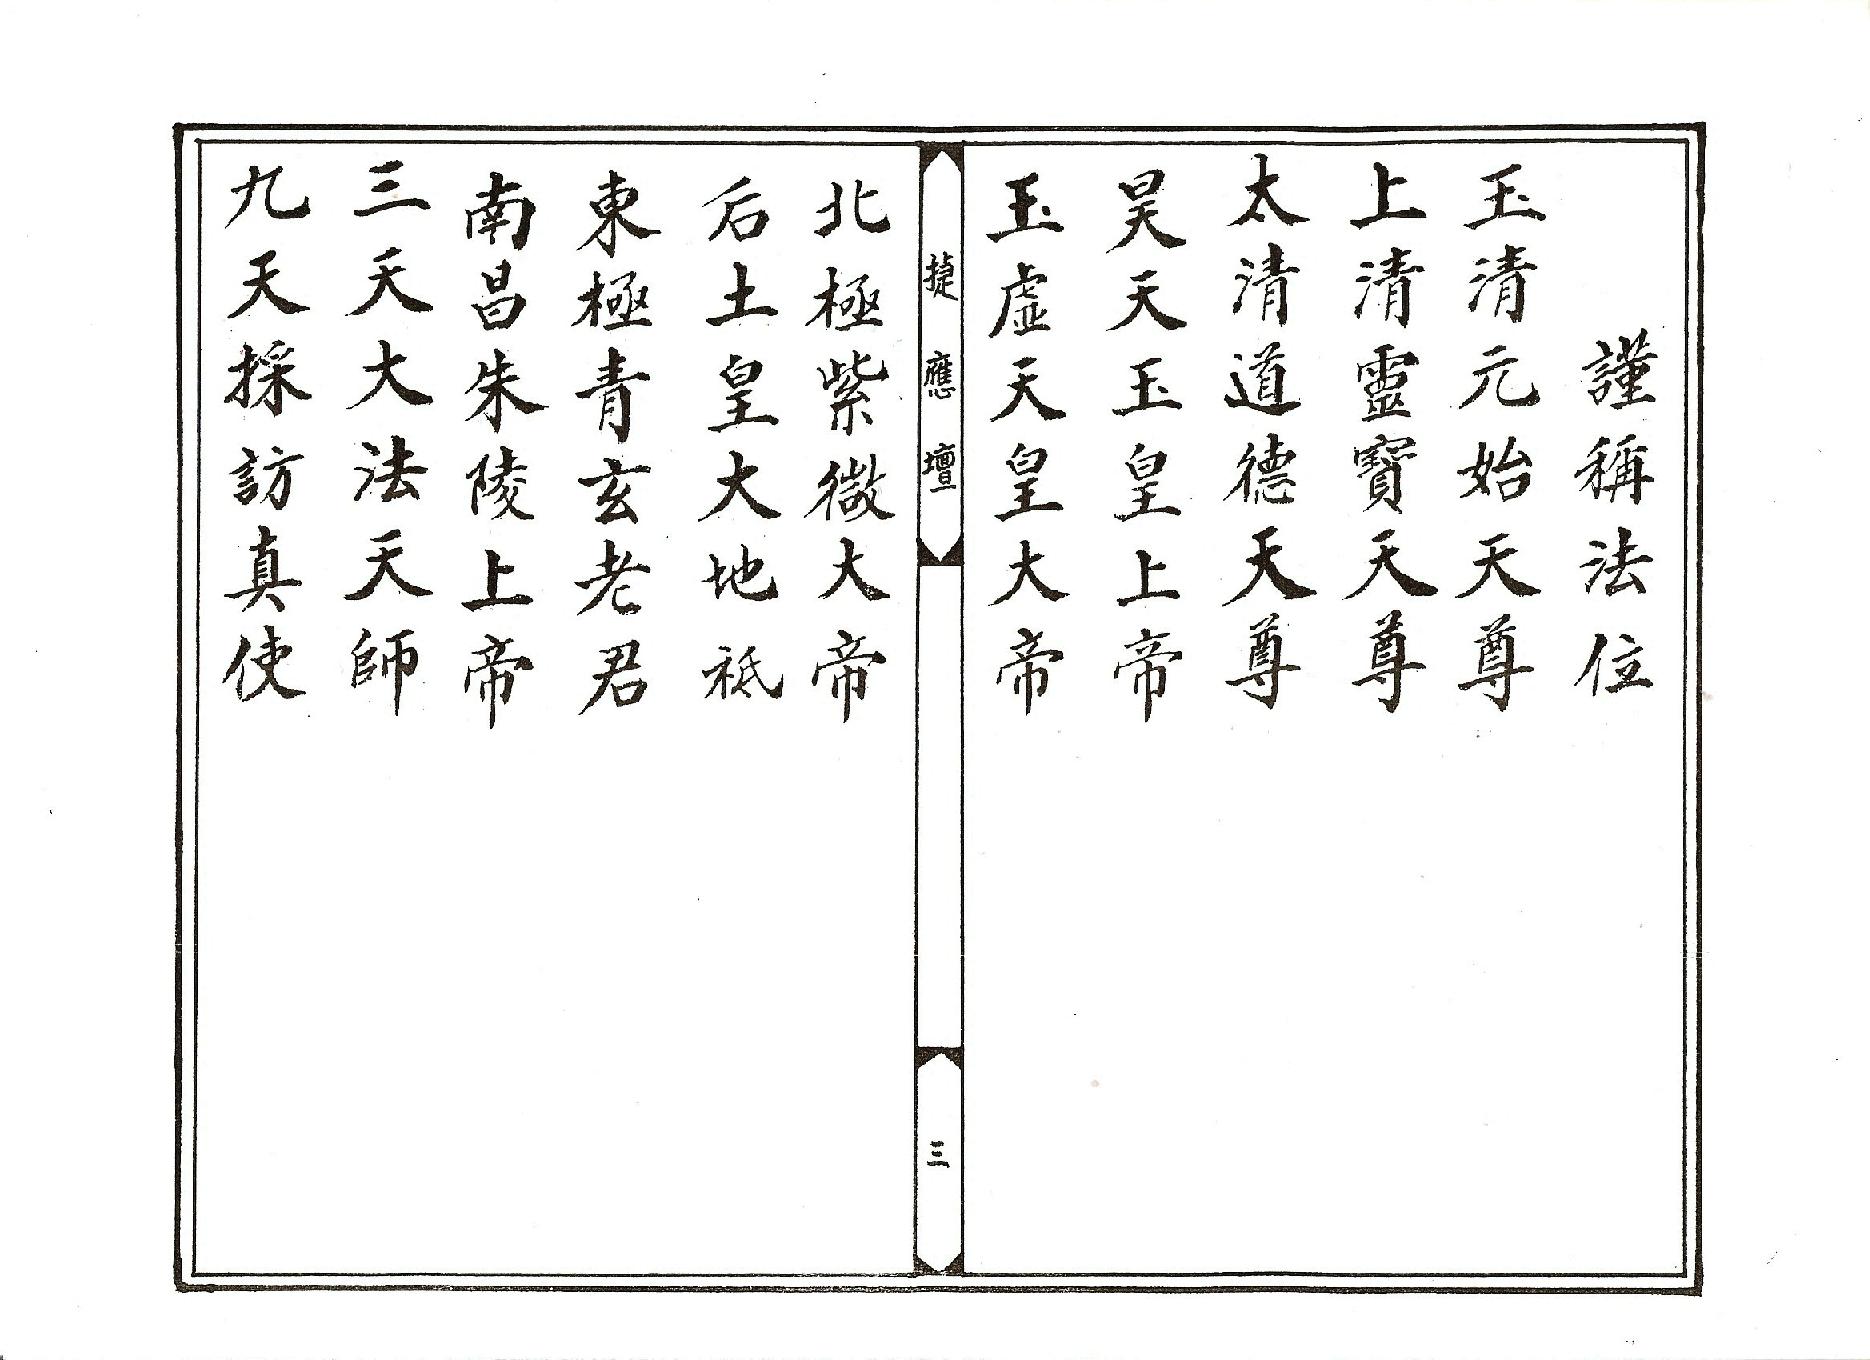 謹稱法位
玉清元始天尊
上清靈寶天尊
太清道德天尊
昊天玉皇上帝
玉虛天皇大帝
捷應壇
三
北極紫微大帝
后土皇大地祇
東極青玄老君
南昌朱陵上帝
三天大法天師
九天採訪真使